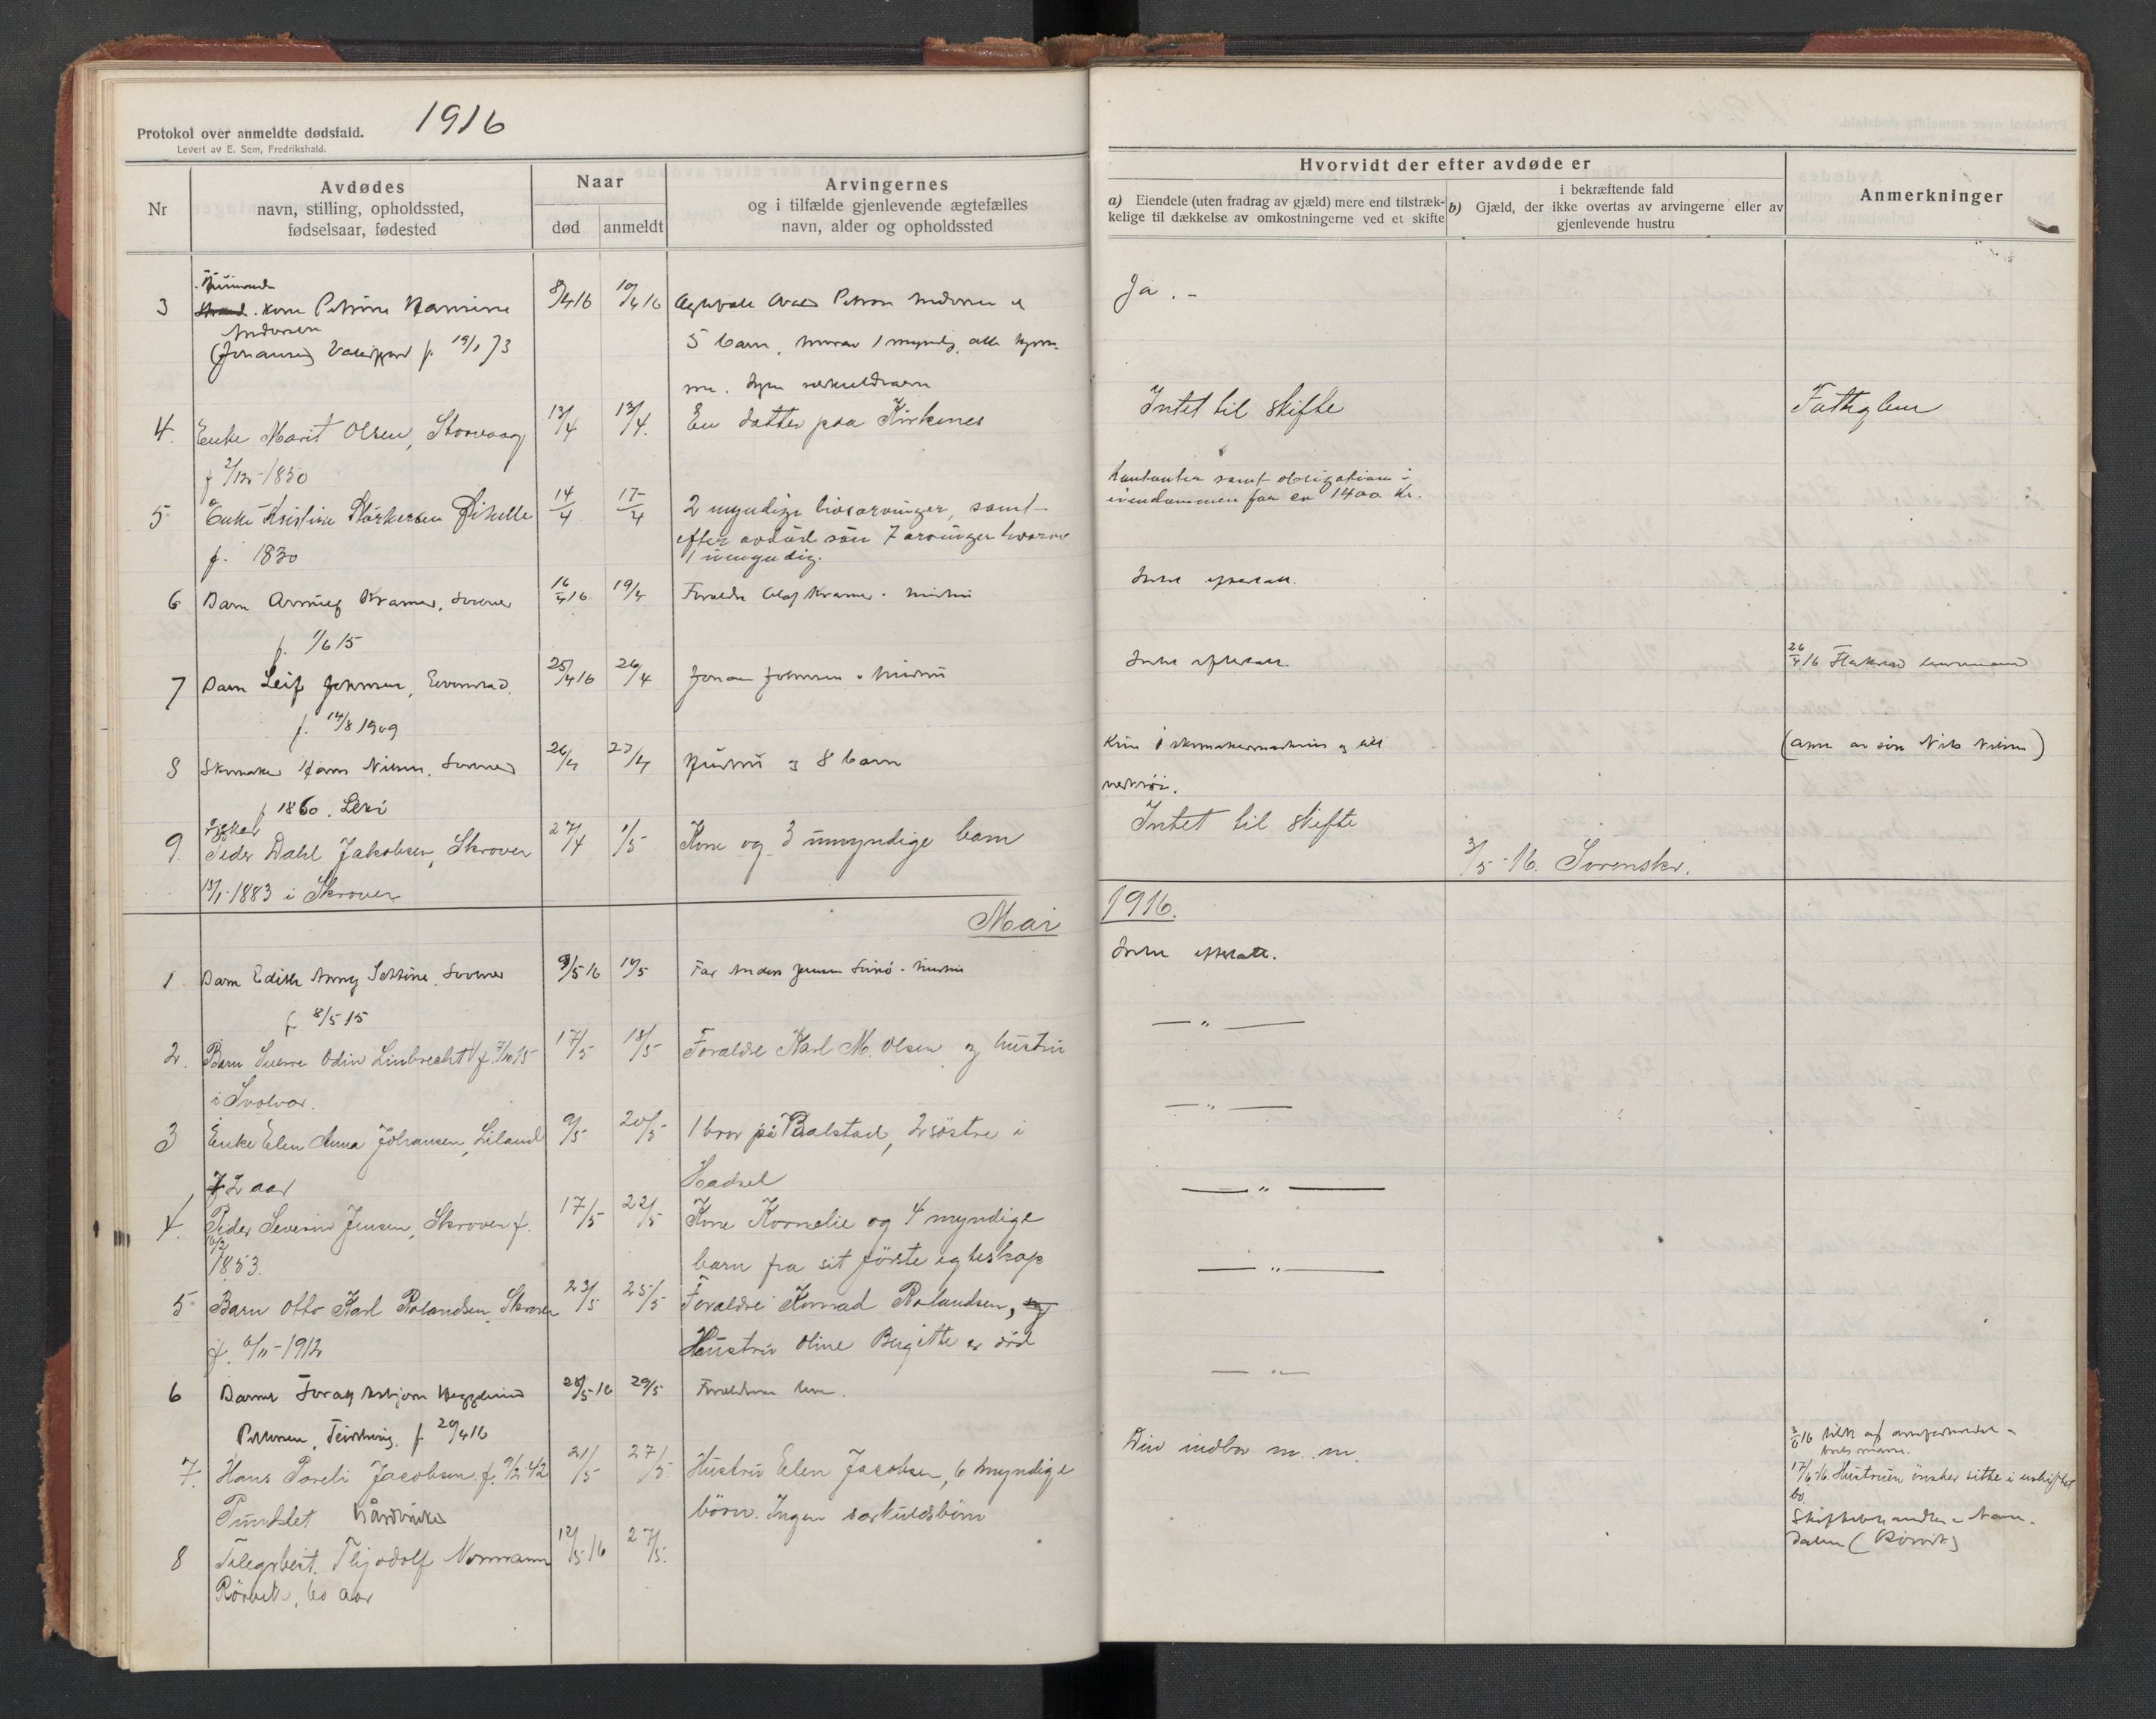 1916
Protokol over anmeldte dødsfald.
Levert av E. Sem, Fredrikshald.
Nr
Avdødes
navn, stilling, opholdssted,
fødselsaar, fødested
Naar
død
anmeldt
Arvingernes
og i tilfælde gjenlevende ægtefælles
navn, alder og opholdssted
Hvorvidt der efter avdøde er
a) Eiendele (uten fradrag av gjæld) mere end tilstræk-
kelige til dækkelse av omkostningerne ved et skifte
i bekræftende fald
b) Gjæld, der ikke overtas av arvingerne eller av
gjenlevende hustru
Anmerkninger
3 kone Petrine Hansine 8/4 16 10/4 16
Andersen
(Johansen) f. 19/1 73
5 barn, hvorav 1 myndig, alle
Ja. -
4. Enke Marit Olsen, Storvaag 13/4 13/4. En datter paa Kirkenes
f 2/12-1850
Intet til skifte
5 Enke Kristine Störkersen 14/4 17/4 2 myndige livsarvinger, samt
f. 1830
efter avdöd sön 7 arvinger hvorav
1 umyndig.
Kontanter samt obligation i
eiendommen for ca 1400 kr.
6 Barn Kramer, 16/4 16 19/4 Forældre Olaf Kramer
f. 1/6 15
Intet efterlatt.
7 Barn Leif Johnsen, 25/4 16 26/4 Johan Johnsen o hustru
f. 14/8 1909
Intet efterlatt.
26/4 16
8 Skomaker Hans Nilsen. 26/4 27/4 Hustru og 8 barn
f 1860. Leki
Kun 1 skomakermaskin og litt
verktöi.
(anm av sön Nils Nilsen)
9. Peder Dahl Jakobsen, Skrover 27/4 1/5 Kone og 3 umyndige barn
13/1-1883 i Skrover
Intet til skifte
3/5-16. Sorenskr.
Mai 1916.
1 Barn Edith Settine. 9/5 16 10/5 Far Anders Jensen
f 8/5 15
Intet efterlatt.
2. Barn Sverre Odin Linbrecht f. 7/10 15 17/5 18/5 Forældre Karl M. Olsen og hustru
i Svolvær.
— " —
3 Enke Elen Anna Johansen, Liland 9/5 20/5 1 bror på Balstad, 2 söstre i
72 aar
Hadsel
— " —
4. Peder Severin Jensen, Skrover f. 17/5 22/5 Kone Kornelie og 4 myndige
1853.
barn fra sit förste egteskap
— " —
5 Barn Otto Karl Rolandsen, Skrover 23/5 25/5 Forældre Konrad Rolandsen,
f. 6/11-1912
Hustru Oline Birgitte er död
— " —
6 Barnet 28/5 16 29/5 Forældrene lever.
Pettersen, f. 29/4 16
— " —
7. Hans Pareli Jacobsen f. 9/2-42 21/5 27/5. Hustru Elen Jacobsen, 6 myndige
Pundslet
börn. Ingen særkuldsbörn
Div indbo m. m.
17/6-16. Hustruen önsker sitte i uskiftet
bo.
8 Telegrbest. Thjodolf Normann 12/5 16 27/5.
Rörvik, 60 aar
Skiftebehandles i Nam-
dalen (Rörvik)